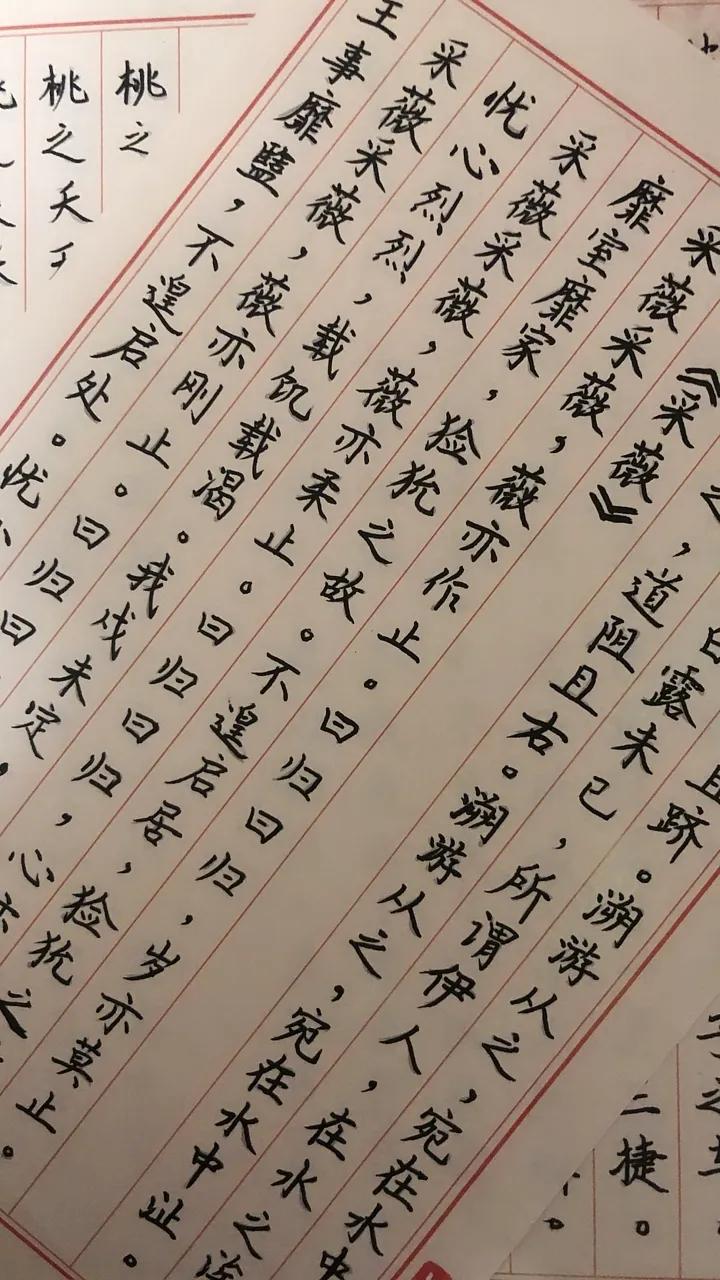 捷。
且跻。溯游从之，宛在水中
白露未已，所谓伊人，在水之涘
之，道阻且右。溯游从之，宛在水中沚。
《采薇》
采薇采薇，薇亦作止。曰归曰归，岁亦莫止。
靡室靡家，猃狁之故。不遑启居，猃狁之
采薇采薇，薇亦柔止。曰归曰归，心亦
忧心烈烈，载饥载渴。我戍未定，
采薇采薇，薇亦刚止。曰归曰
王事靡盬，不遑启处。忧心
桃之
桃之夭